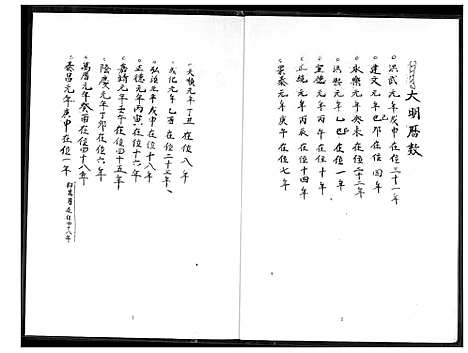 大明曆數
洪武元年戊申在位三十一年
建文元年己卯在位四年
永樂元年癸未在位二十二年
洪熙元年乙巳在位一年
宣德元年丙午在位十年
正統元年丙辰在位十四年
景泰元年庚午在位七年
2
天順元年丁丑在位八年
成化元年乙酉在位二十三年
弘治元年戊申在位十八年
正德元年丙寅在位十六年
嘉靖元年壬午在位四十五年
隆慶元年丁卯在位六年
萬曆元年癸酉在位四十八年
泰昌元年庚申在位一年
即萬曆在位四十八年